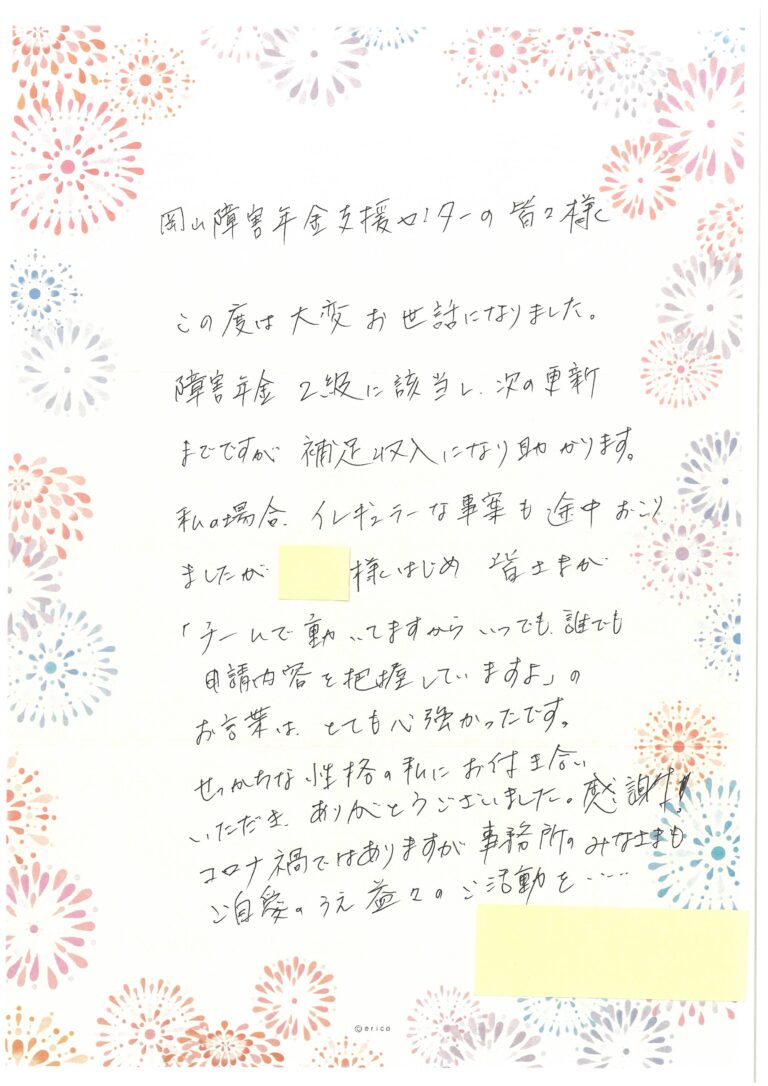 岡山障害年金支援センターの皆々様
この度は大変お世話になりました。
障害年金2級に該当し、次の更新
までですが補足収入になり助かります。
私の場合、イレギュラーな事案も途中おこり
ましたが 様はじめ皆さまが
「チームで動いてますからいつでも、誰でも
申請内容を把握していますよ」の
お言葉は、とても心強かったです。
せっかちな性格の私にお付き合い
いただき、ありがとうございました。感謝!!
コロナ禍ではありますが事務所のみなさまも
ご自愛のうえ益々のご活動を……
©erico